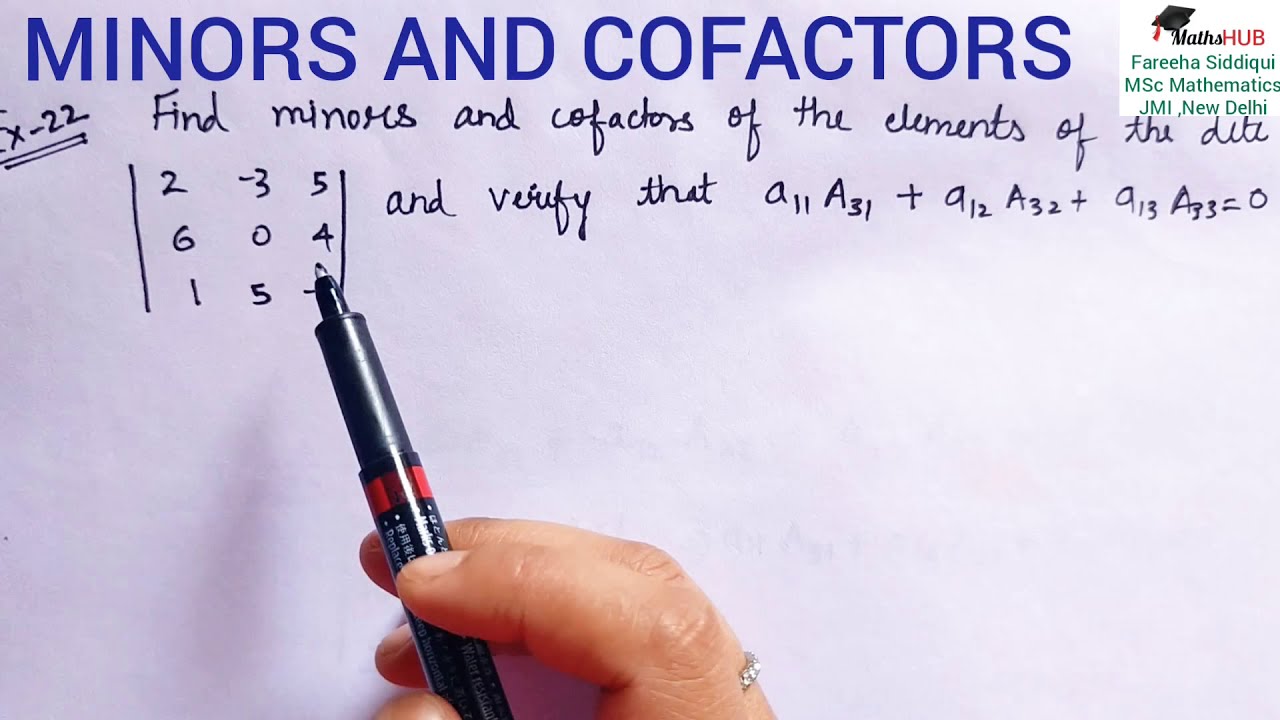 MINORS AND COFACTORS
MathsHUB
Fareeha Siddiqui
MSc Mathematics
JMI ,New Delhi
Ex-22 Find minors and cofactors of the elements of the dete
2 -3 5 and verify that a11 A31 + a12 A32 + a13 A33 = 0
6 0 4
1 5 -
使用後は
Replace
Water resistant